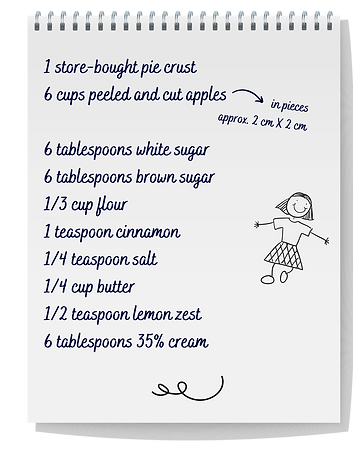 1 store-bought pie crust
6 cups peeled and cut apples
in pieces
approx. 2 cm X 2 cm
6 tablespoons white sugar
6 tablespoons brown sugar
1/3 cup flour
1 teaspoon cinnamon
1/4 teaspoon salt
1/4 cup butter
1/2 teaspoon lemon zest
6 tablespoons 35% cream